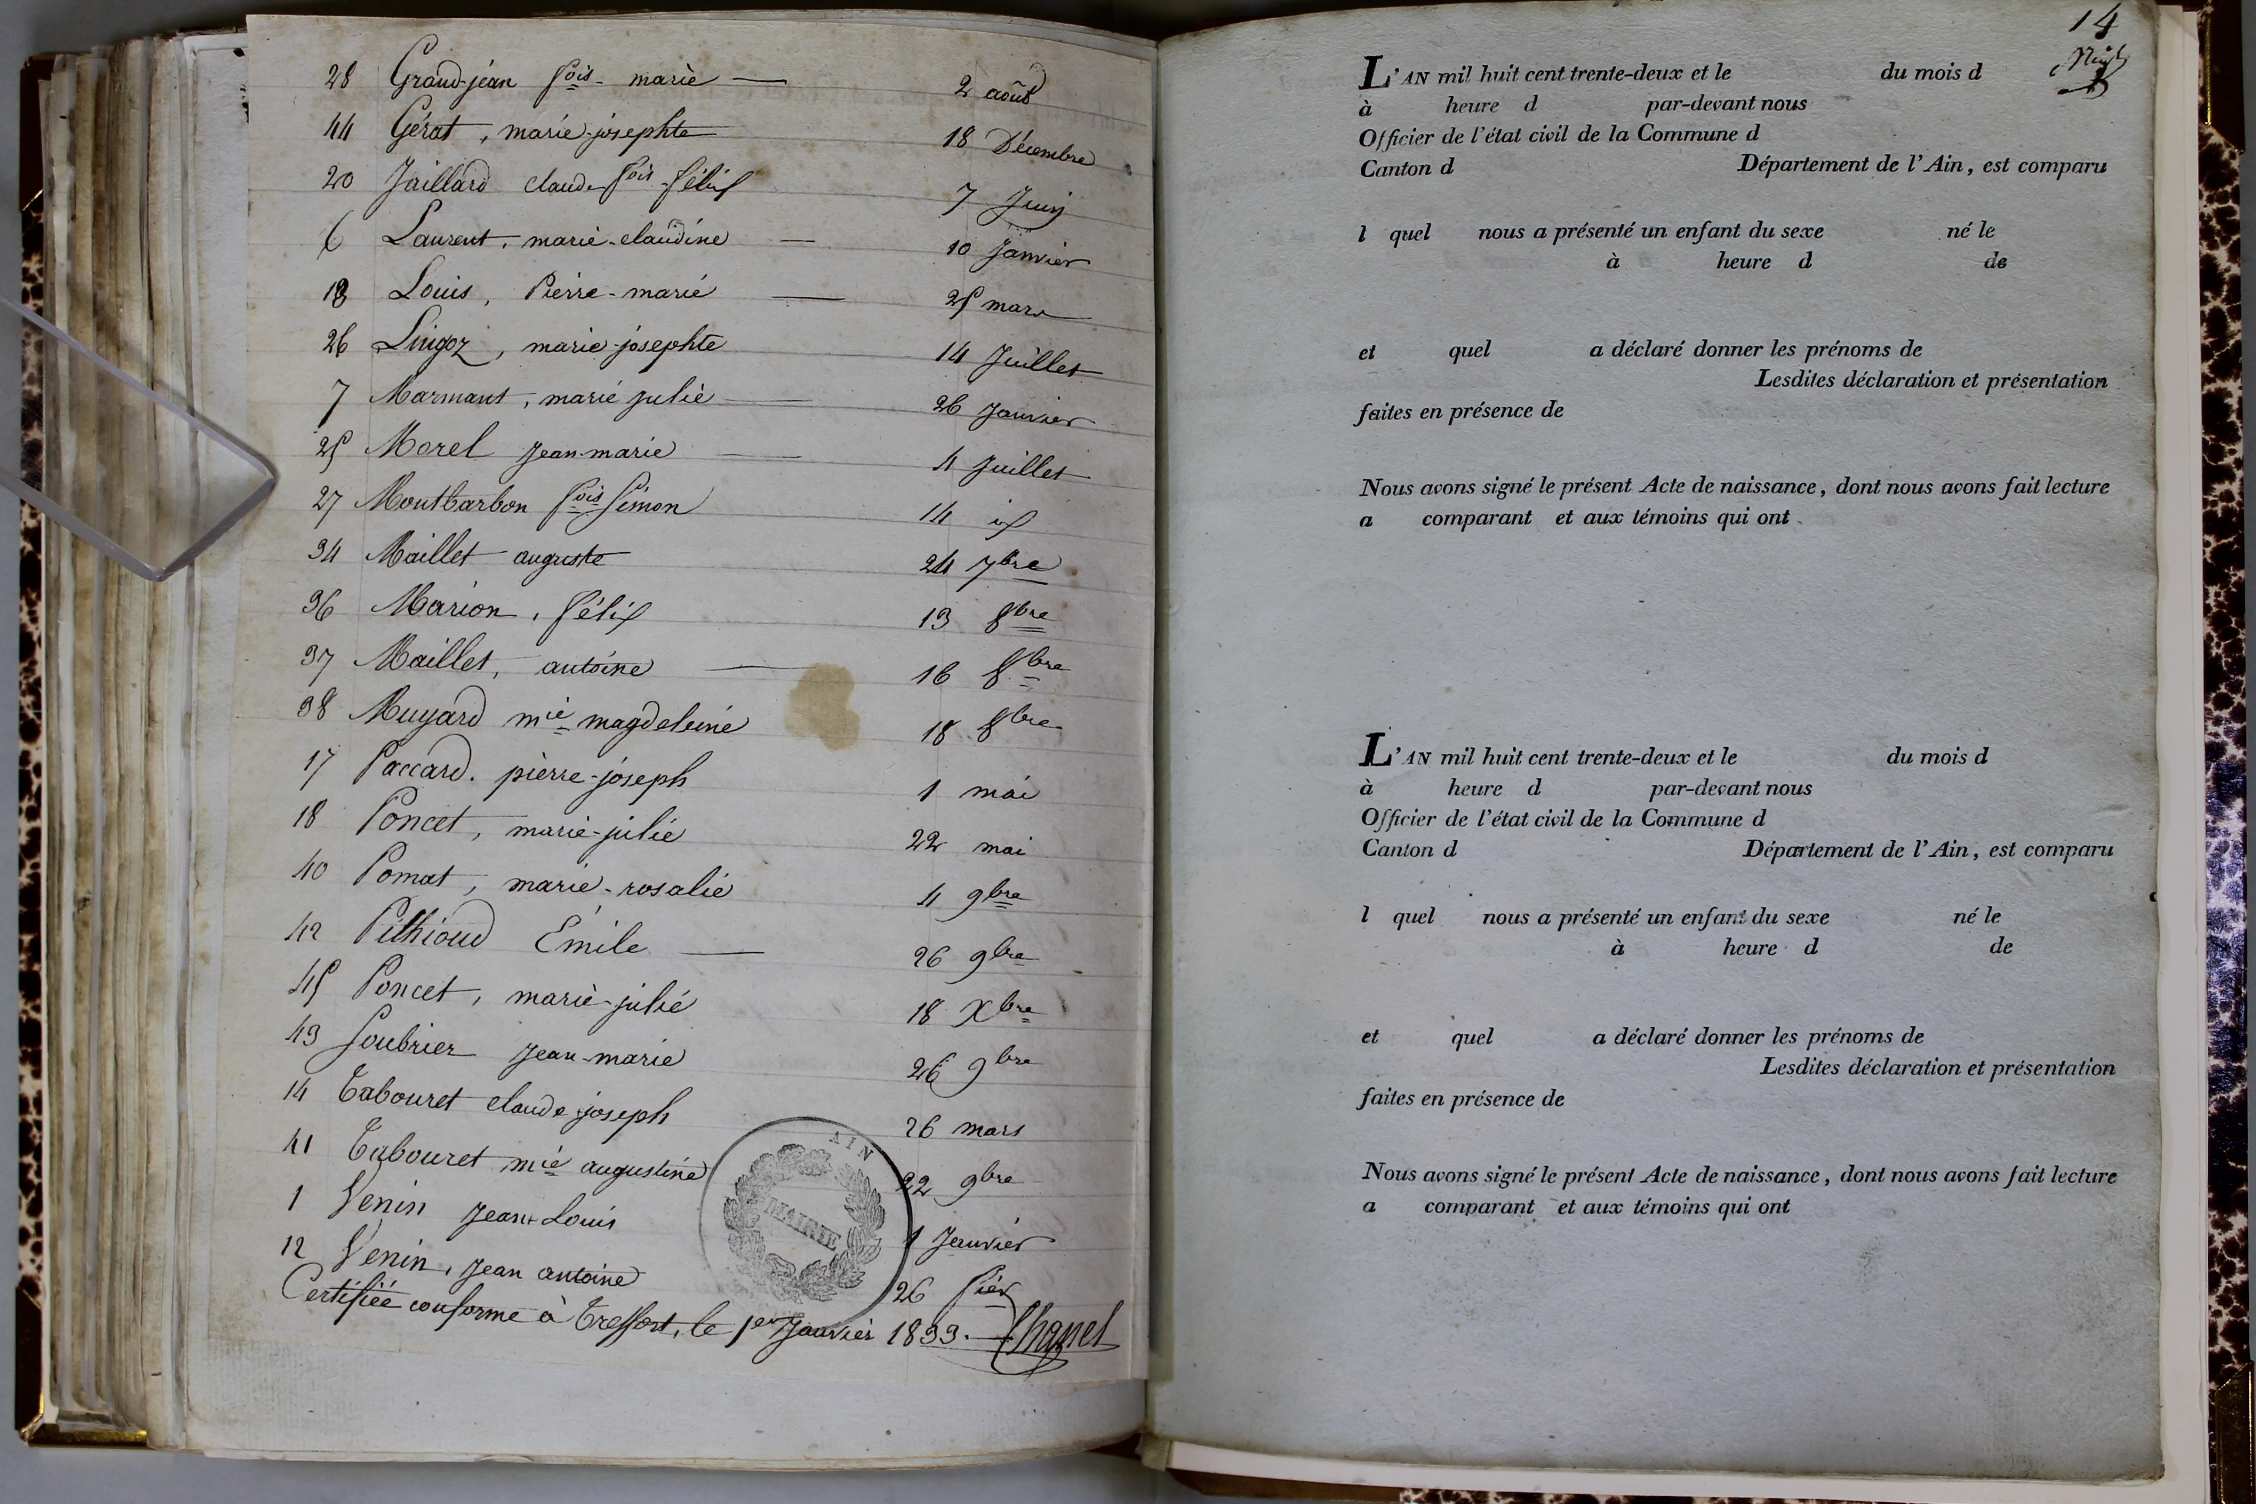 28 Grand-jéan fois- marie — 2 août
44 Gérat, marie-josephte 18 Décembre
20 Jaillard claude fois-félix 7 Juin
6 Laurent, marie-claudine — 10 Janvier
13 Louis, Pierre-marie — 25 mars
26 Lingoz, marie-josephte 14 Juillet
7 Marmant, marie julie — 26 Janvier
25 Morel Jean-marie — 4 Juillet
27 Montbarbon fois Simon 14 id
34 Maillet auguste 24 7bre
36 Marion, félix 13 8bre
37 Maillet, antoine — 16 8bre
38 Muyard mie magdeleine 18 8bre
17 Paccard. pierre-joseph 1 mai
18 Poncet, marie-julie 22 mai
40 Pomat, marie-rosalie 4 9bre
42 Pithioud Émile — 26 9bre
45 Poncet, marie-julie 18 Xbre
43 Soubrier Jean-marie 26 9bre
14 Tabouret claude-joseph 26 mars
41 Tabouret mie augustine 22 9bre
1 Venin Jean Louis 1 Janvier
12 Venin, Jean antoine 26 fier
Certifiée conforme à Treffort, le 1er Janvier 1833. Chanel
AIN
MAIRIE
14
L'AN mil huit cent trente-deux et le du mois d
à heure d par-devant nous
Officier de l'état civil de la Commune d
Canton d Département de l'Ain, est comparu
l quel nous a présenté un enfant du sexe né le
à heure d de
et quel a déclaré donner les prénoms de
Lesdites déclaration et présentation
faites en présence de
Nous avons signé le présent Acte de naissance, dont nous avons fait lecture
a comparant et aux témoins qui ont
L'AN mil huit cent trente-deux et le du mois d
à heure d par-devant nous
Officier de l'état civil de la Commune d
Canton d Département de l'Ain, est comparu
l quel nous a présenté un enfant du sexe né le
à heure d de
et quel a déclaré donner les prénoms de
Lesdites déclaration et présentation
faites en présence de
Nous avons signé le présent Acte de naissance, dont nous avons fait lecture
a comparant et aux témoins qui ont